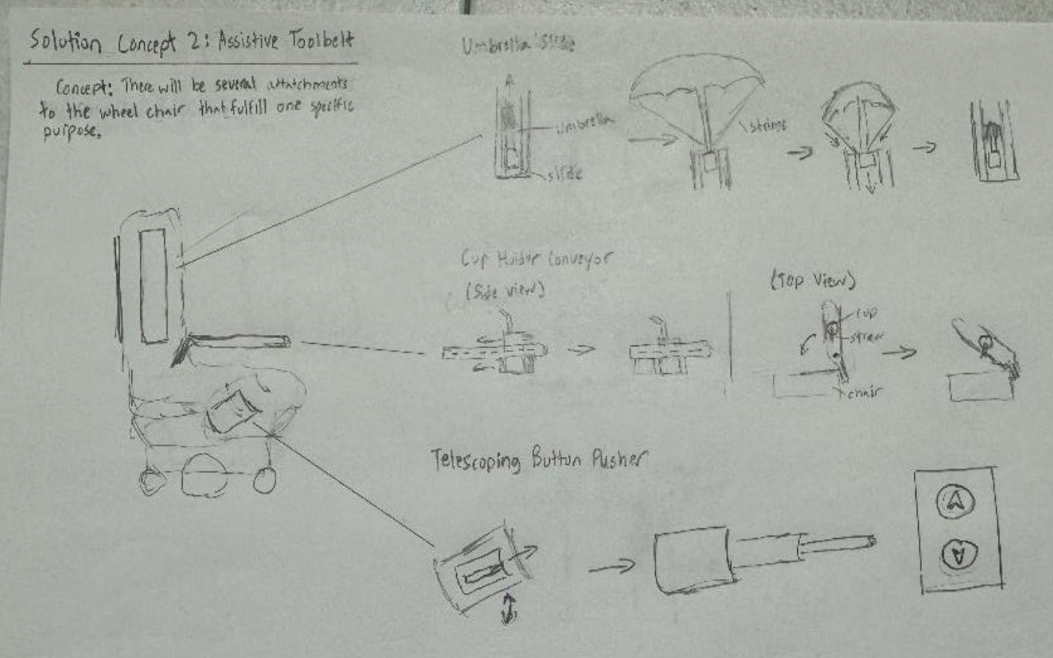 Solution Concept 2: Assistive Toolbelt
Concept: There will be several attatchments
to the wheel chair that fulfill one specific
purpose.
Umbrella Slide
Umbrella
slide
strings
Cup Holder Conveyor
(Side view)
(Top View)
cup
straw
chair
Telescoping Button Pusher
A
A